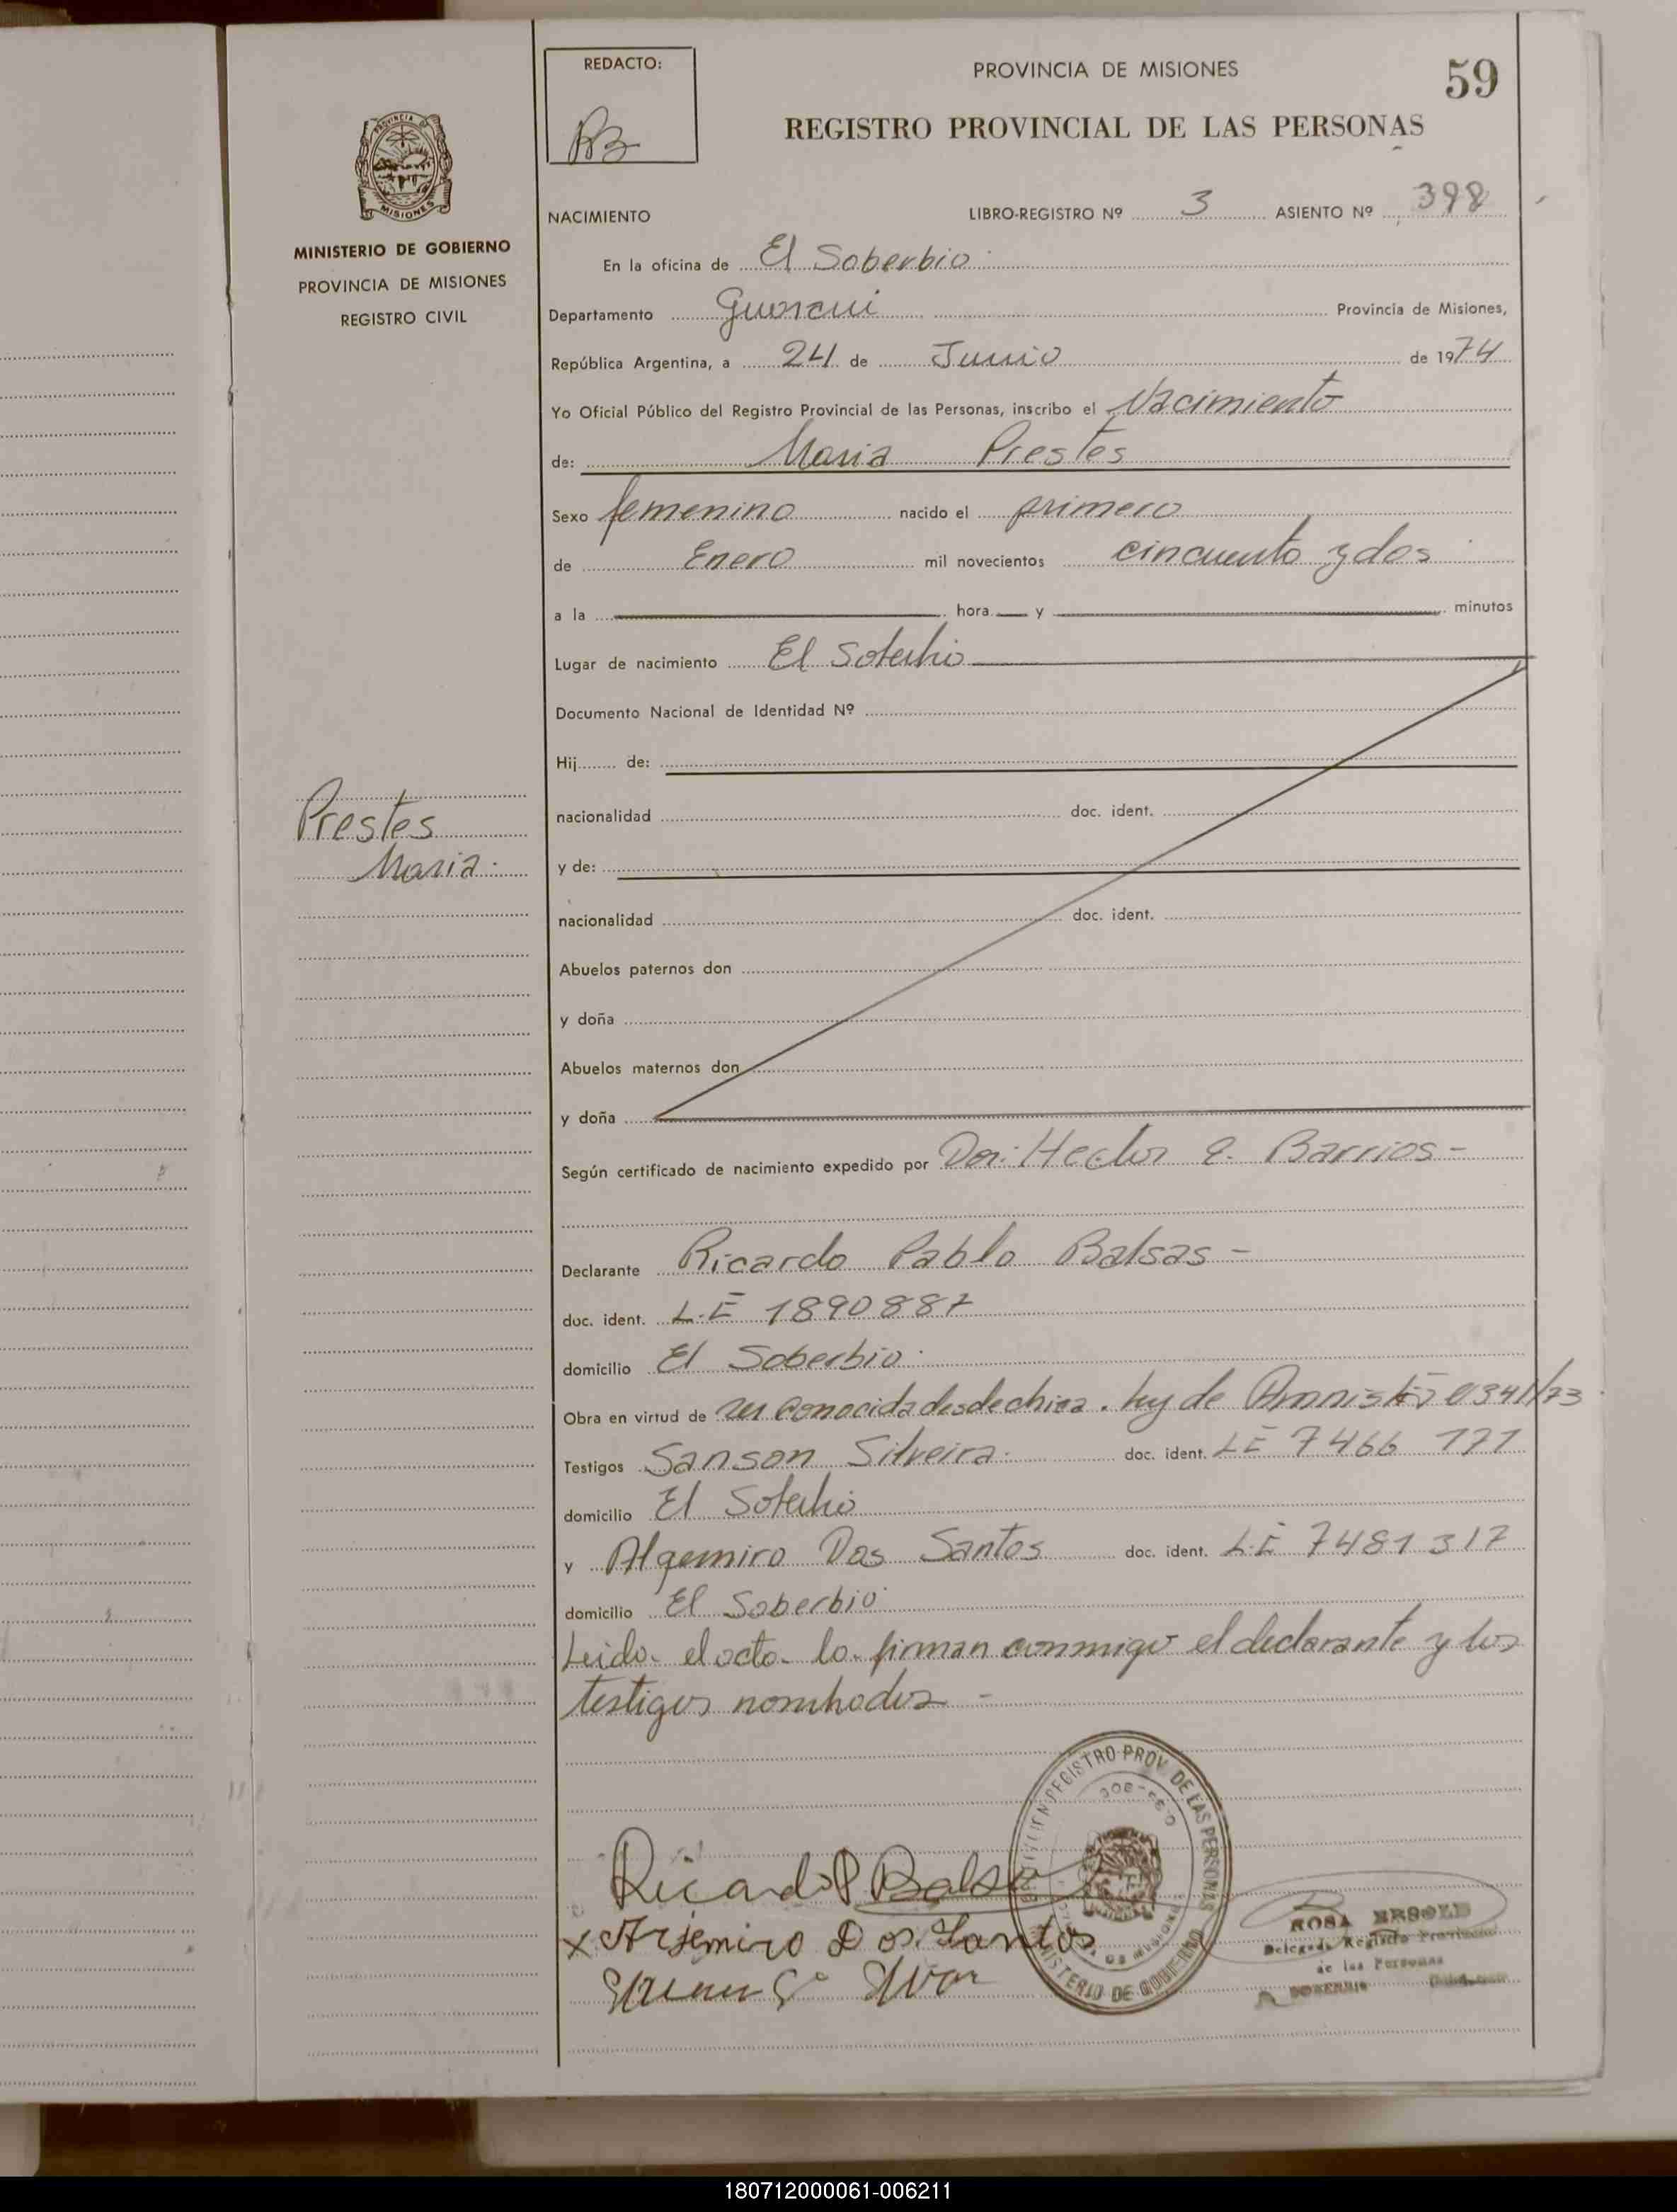 REDACTO:
RB
PROVINCIA DE MISIONES
59
REGISTRO PROVINCIAL DE LAS PERSONAS
PROVINCIA DE
MISIONES
MINISTERIO DE GOBIERNO
PROVINCIA DE MISIONES
REGISTRO CIVIL
NACIMIENTO LIBRO-REGISTRO Nº 3 ASIENTO Nº 398
En la oficina de El Soberbio
Departamento Guarani Provincia de Misiones,
República Argentina, a 24 de Junio de 1974
Yo Oficial Público del Registro Provincial de las Personas, inscribo el Nacimiento
de: Maria Prestes
Sexo femenino nacido el primero
de Enero mil novecientos cincuenta y dos
a la hora y minutos
Lugar de nacimiento El Soberbio
Documento Nacional de Identidad Nº
Hij de:
nacionalidad doc. ident.
Prestes
Maria.
y de:
nacionalidad doc. ident.
Abuelos paternos don
y doña
Abuelos maternos don
y doña
Según certificado de nacimiento expedido por Don: Hector E. Barrios -
Declarante Ricardo Pablo Balsas -
doc. ident. L.E 1890887
domicilio El Soberbio.
Obra en virtud de ser conocida desde chica. Ley de Amnistia 0341/73
Testigos Sanson Silveira. doc. ident. LE 7466 171
domicilio El Soberbio
y Algemiro Dos Santos doc. ident. L.E 7481 317
domicilio El Soberbio
Leido el acto lo firman conmigo el declarante y los
testigos nombrados -
REGISTRO PROV. DE LAS PERSONAS
MINISTERIO DE GOBIERNO
Ricardo P Balsa
x Arjemiro Dos Santos
ROSA
Delegada Registro Provincial
de las Personas
SOBERBIO
180712000061-006211